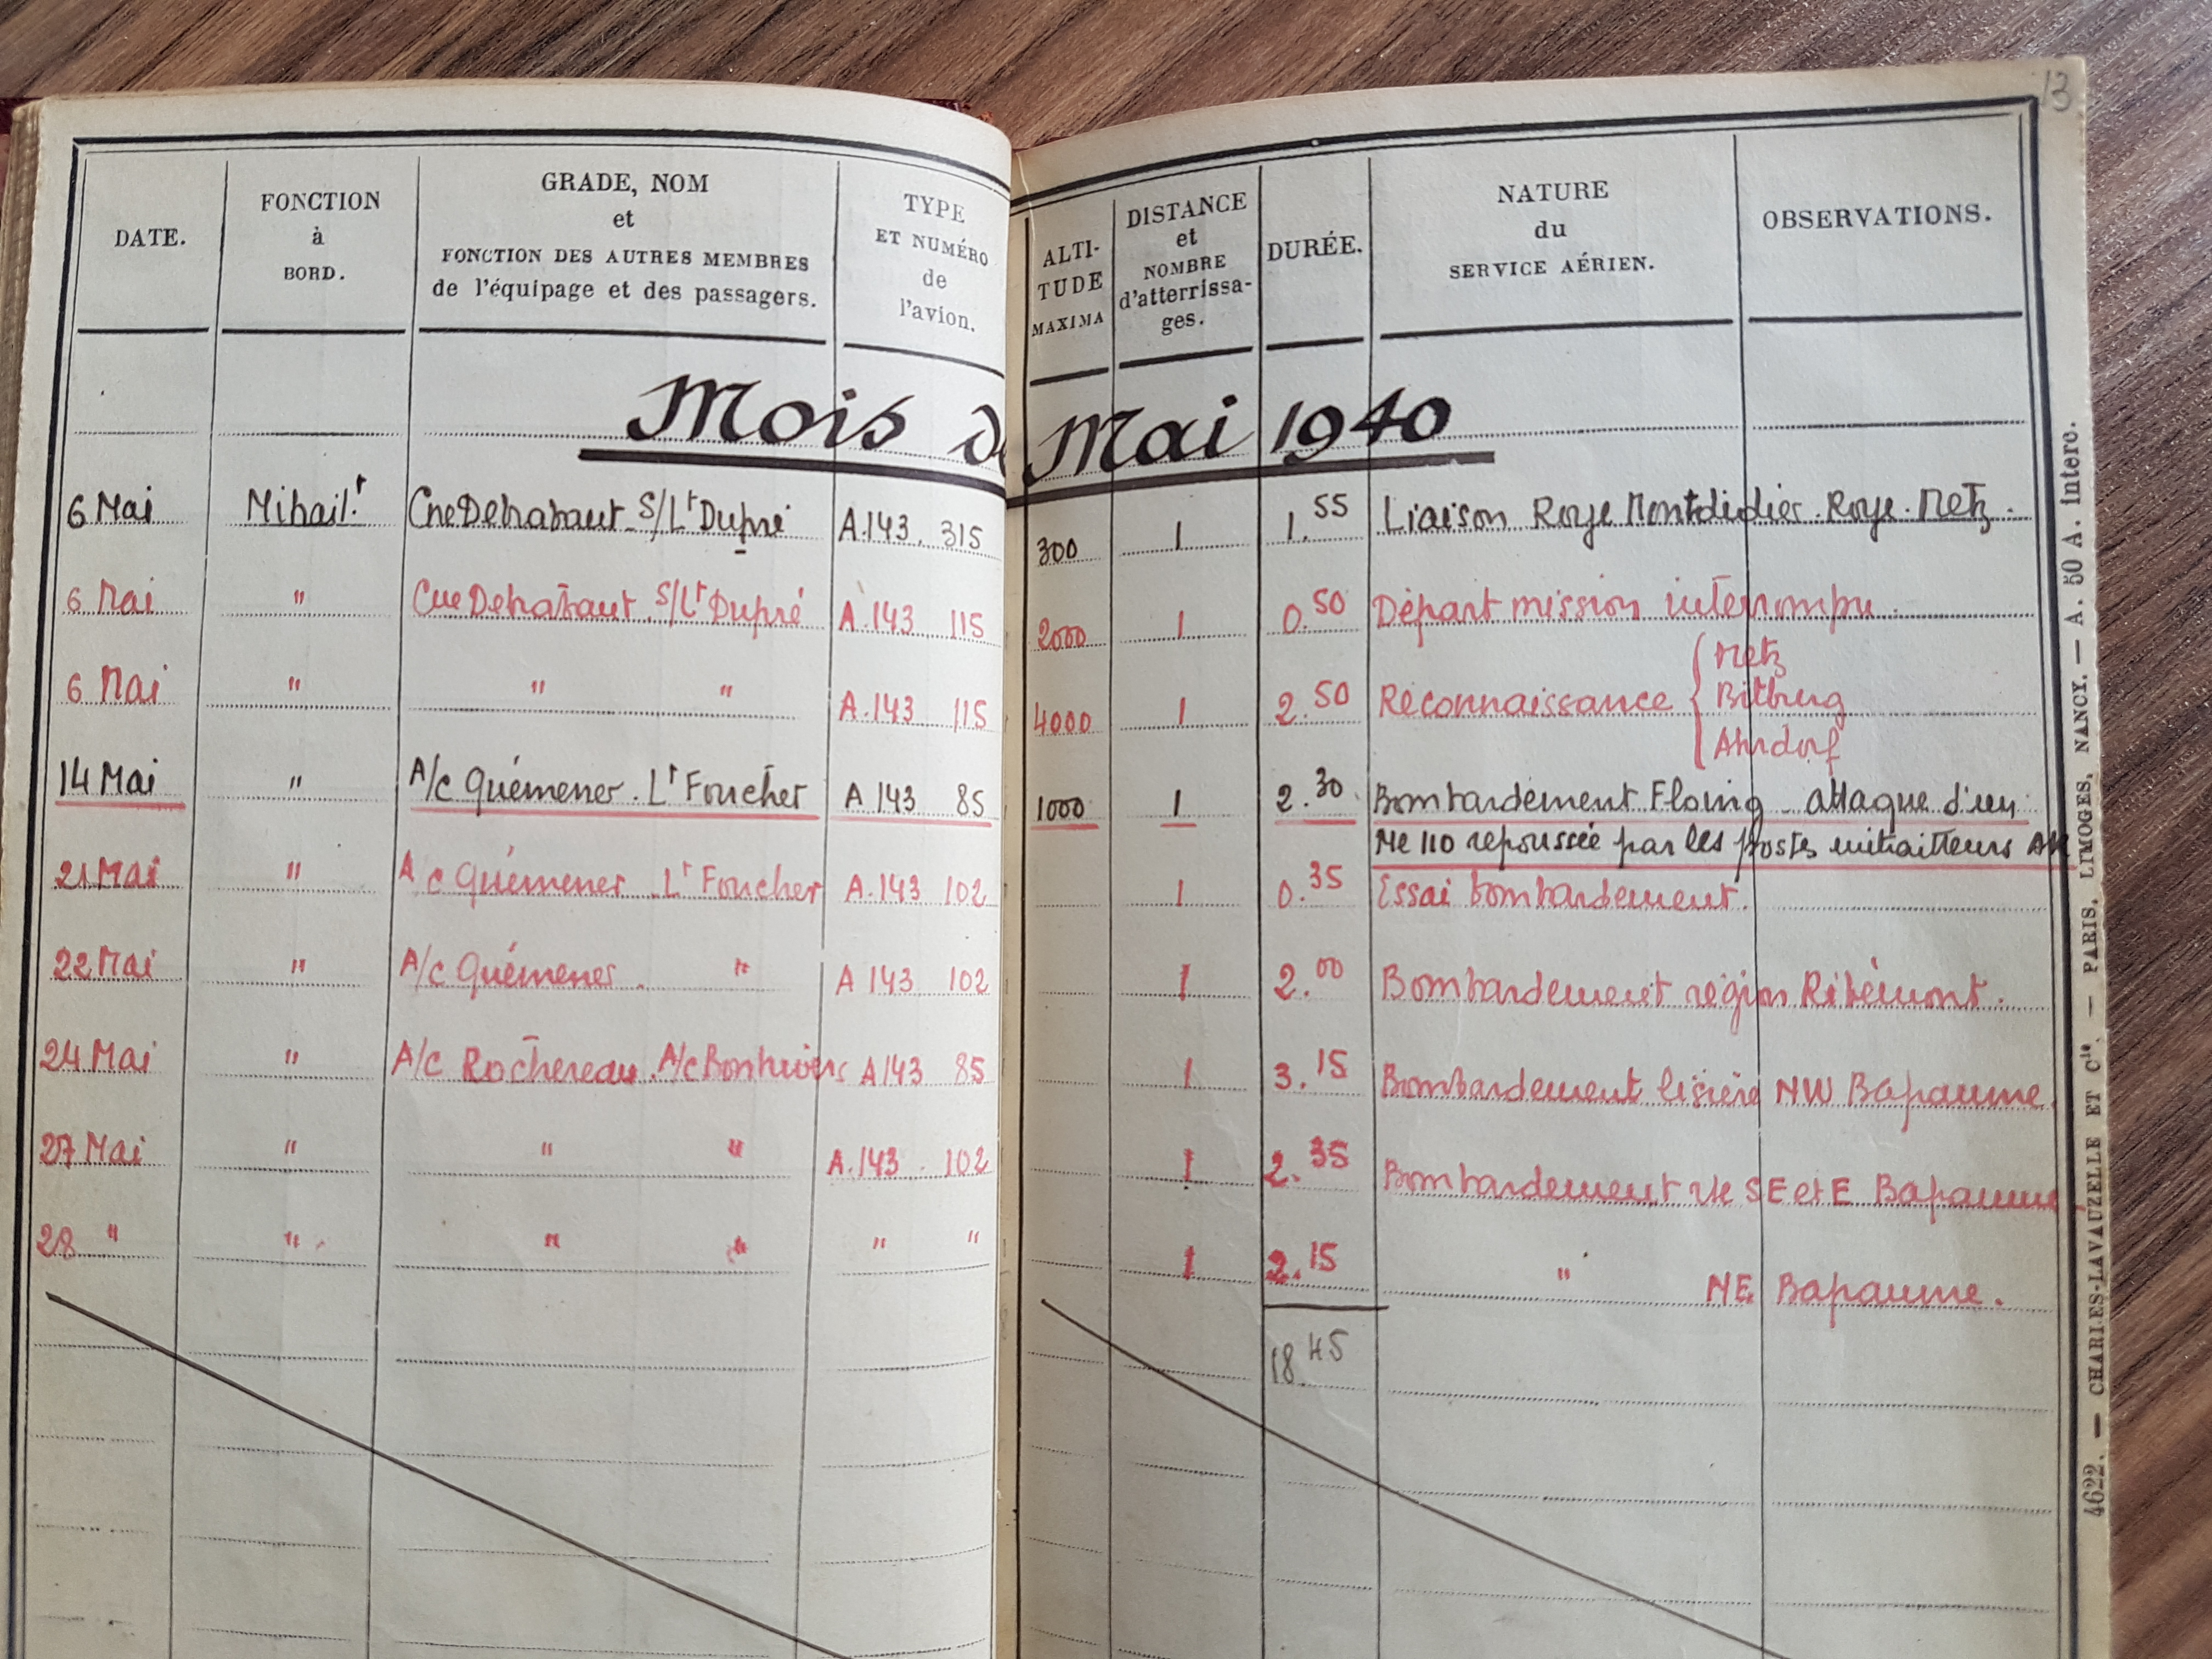 13
DATE.
FONCTION
à
BORD.
GRADE, NOM
et
FONCTION DES AUTRES MEMBRES
de l'équipage et des passagers.
TYPE
ET NUMÉRO
de
l'avion.
ALTI-
TUDE
MAXIMA
DISTANCE
et
NOMBRE
d'atterrissa-
ges.
DURÉE.
NATURE
du
SERVICE AÉRIEN.
OBSERVATIONS.
Mois de Mai 1940
6 Mai Mitrail.r Cne Detrabaut S/Lt Dupré A.143. 315 300 1 1.55 Liaison Roye Montdidier. Roye. Metz.
6 Mai " Cne Detrabaut. S/Lt Dupré A.143 115 2000 1 0.50 Départ mission interrompu.
6 Mai " " " A.143 115 4000 1 2.50 Réconnaissance { Metz
Bitburg
Ahrdorf
14 Mai " A/c Quémener. Lt Foucher A 143 85 1000 1 2.30 Bombardement Floing attaque d'un
Me 110 repoussée par les postes mitrailleurs AR
21 Mai " A c Quémener Lt Foucher A.143 102 1 0.35 Essai bombardement.
22 Mai " A/c Quémener. " A 143 102 1 2.00 Bombardement région Ribémont.
24 Mai " A/c Rochereau. A/c A 143 85 1 3.15 Bombardement lisière NW Bapaume.
27 Mai " " " A.143. 102 1 2.35 Bombardement SE et E Bapaume
28 " " " " " " 1 2.15 " NE Bapaume.
18.45
4622. — CHARLES-LAVAUZELLE ET Cie. — PARIS, LIMOGES, NANCY. — A. 50 A. interc.